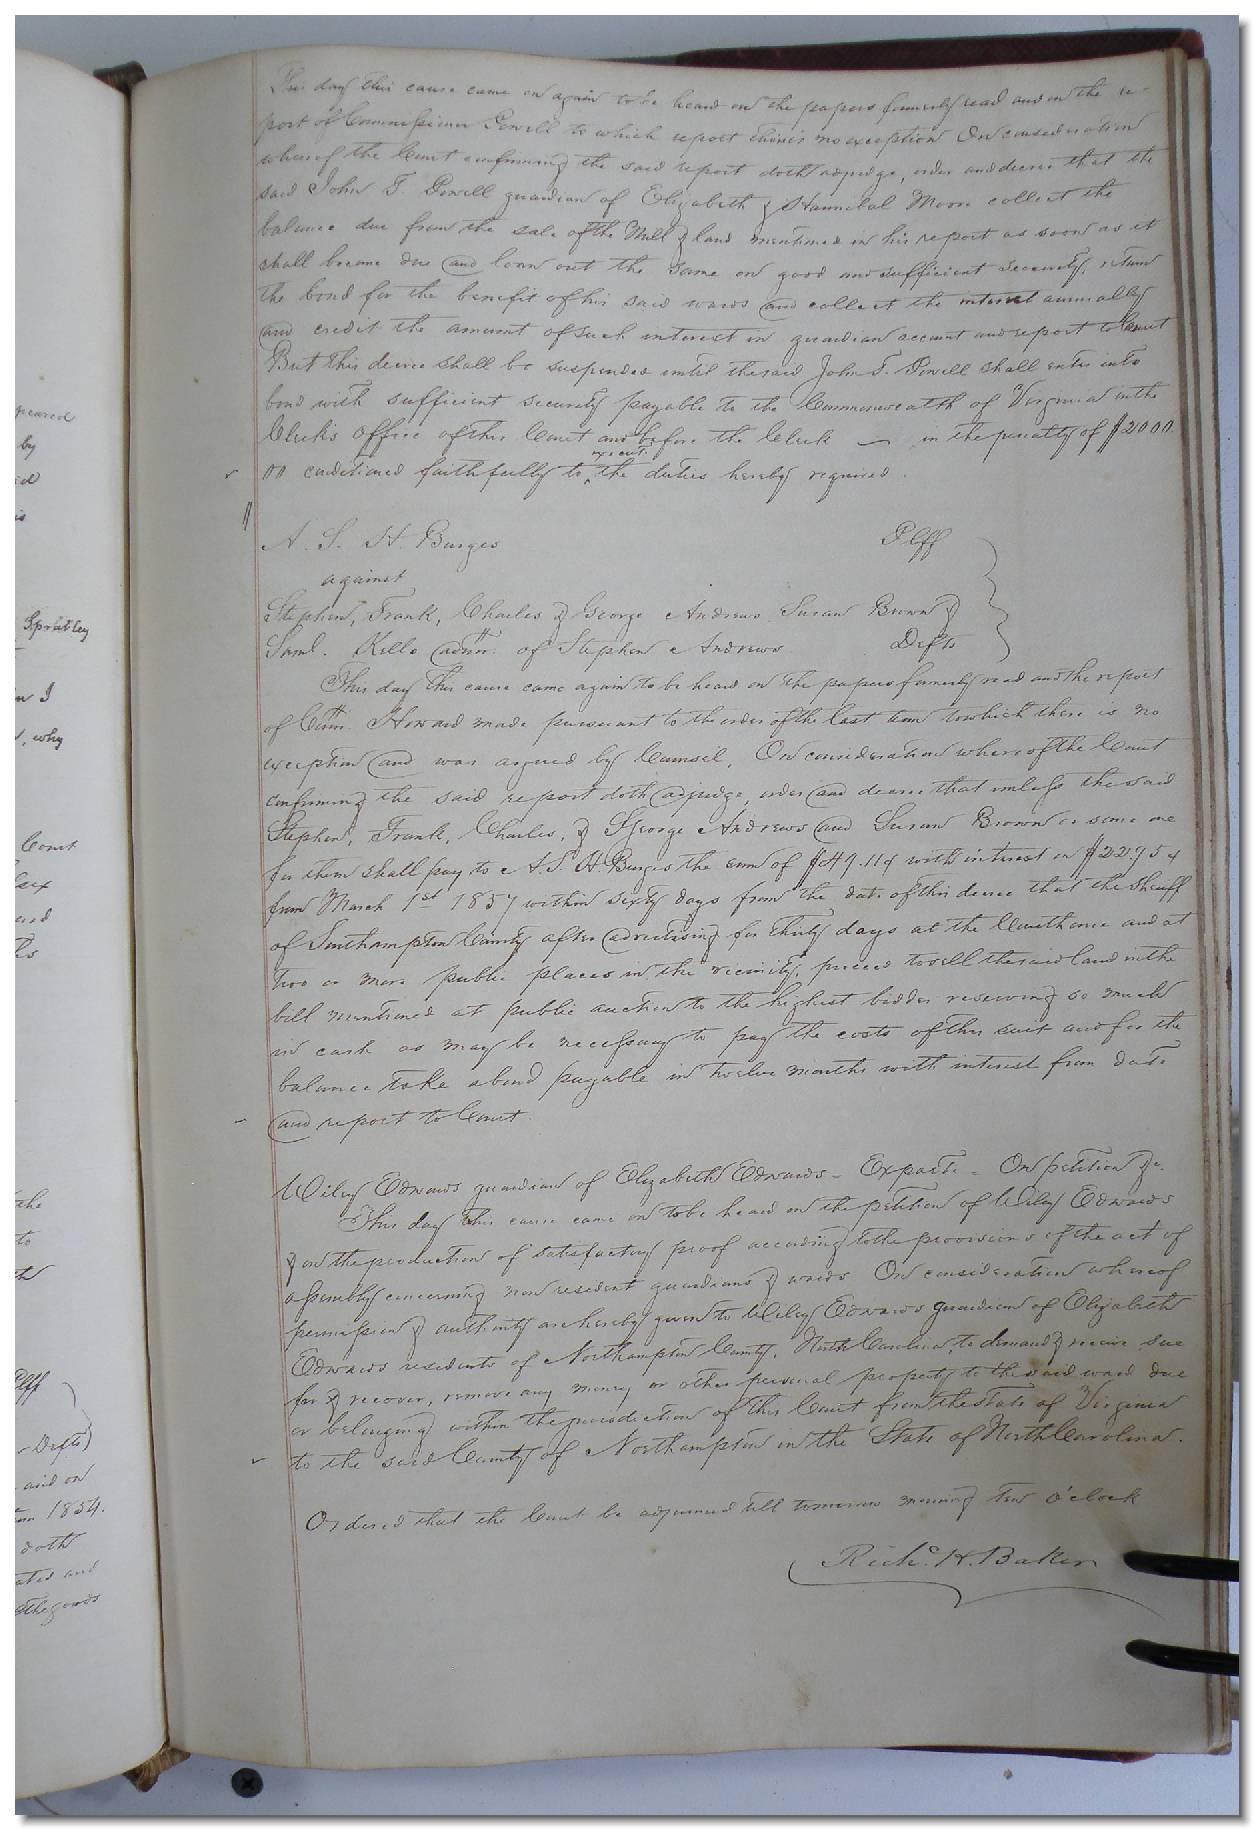 This day this cause came on again to be heard on the papers formerly read and on the re-
port of Commissioner Powell to which report there is no exception On consideration
whereof the Court confirming the said report doth adjudge, order and decree that the
said John T. Powell guardian of Elizabeth & Hannibal Moore collect the
balance due from the sale of the Mill & land mentioned in his report as soon as it
shall become due and loan out the same on good and sufficient security, return
the bond for the benefit of his said wards and collect the interest annually
and credit the amount of such interest in guardian account and report to Court
But this decree shall be suspended until the said John T. Powell shall enter into
bond with sufficient security payable to the Commonwealth of Virginia in the
Clerk's Office of this Court and before the Clerk — in the penalty of $2000.
execute
00 conditioned faithfully to ^ the duties hereby required.
A. S. H. Burges Plff
against
Stephen, Frank, Charles & George Andrews, Susan Brown &
Saml. Kello admr. of Stephen Andrews Defts
This day this cause came again to be heard on the papers formerly read and the report
of Comr. Howard made pursuant to the order of the last term to which there is no
exception and was argued by Counsel, On consideration whereof the Court
confirming the said report doth adjudge, order and decree that unless the said
Stephen, Frank, Charles, & George Andrews and Susan Brown or some one
for them shall pay to A. S. H. Burges the sum of with interest on
from March 1st 1857 within sixty days from the date of this decree that the Sheriff
of Southampton County after advertising for thirty days at the Courthouse and at
two or more public places in the vicinity, proceed to sell the said land in the
bill mentioned at public auction to the highest bidder reserving so much
in cash as may be necessary to pay the costs of this suit and for the
balance take a bond payable in twelve months with interest from date
and report to Court.
Wiley Edwards guardian of Elizabeth Edwards - Exparte - On petition &c.
This day this cause came on to be heard on the petition of Wiley Edwards
& on the production of satisfactory proof according to the provisions of the act of
assembly concerning non resident guardians & wards On consideration whereof
permission & authority are hereby given to Wiley Edwards guardian of Elizabeth
Edwards residents of Northampton County, North Carolina, to demand & receive sue
for & recover, remove any money or other personal property to the said ward due
or belonging within the jurisdiction of this Court from the State of Virginia
to the said County of Northampton in the State of North Carolina.
Ordered that the Court be adjourned till tomorrow morning ten o'clock
Richd. H. Baker
peared
by
ed
is
Spratley
I
, why
Court
and
the
to
Plff
Defts
and on
1854.
doth
ated and
the goods